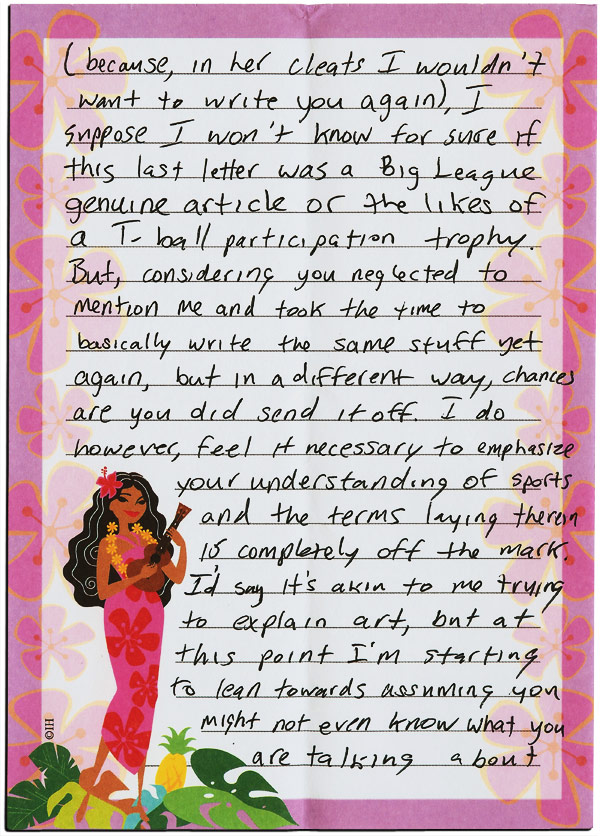 (because, in her cleats I wouldn't
want to write you again), I
suppose I won't know for sure if
this last letter was a Big League
genuine article or the likes of
a T-ball participation trophy.
But, considering you neglected to
mention me and took the time to
basically write the same stuff yet
again, but in a different way, chances
are you did send it off. I do
however, feel it necessary to emphasize
your understanding of sports
and the terms laying therein
is completely off the mark.
I'd say it's akin to me trying
to explain art, but at
this point I'm starting
to lean towards assuming you
might not even know what you
are talking about
©IH